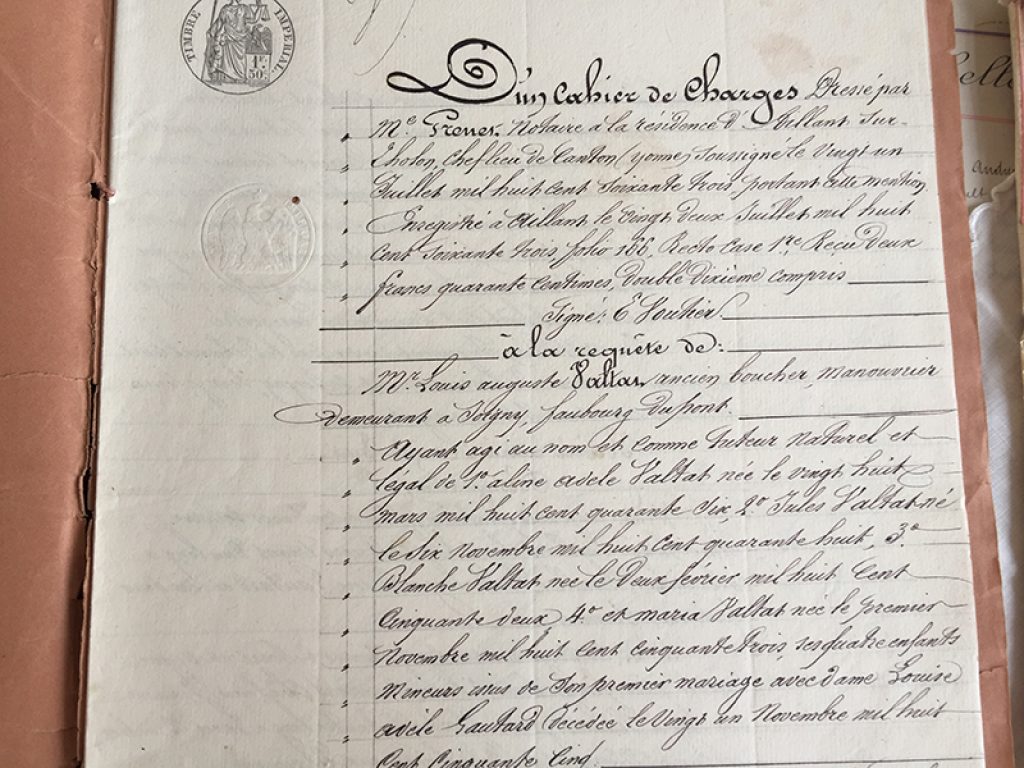 TIMBRE IMPERIAL
1F.
50C.
D'un Cahier de Charges Dressé par
Me. Notaire à la résidence d'Aillant Sur-
Tholon, Cheflieu de Canton (yonne) soussigné le Vingt un
Juillet mil huit cent Soixante trois, portant cette mention.
Enregistré à Aillant le vingt deux Juillet mil huit
Cent Soixante trois, folio 166, Recto Case 1re, Reçu Deux
francs quarante Centimes, double dixième compris
Signé: E
à la requête de:
Mr. Louis auguste Valtat, ancien boucher, manouvrier
demeurant à Joigny, faubourg du pont.
Ayant agi au nom et comme tuteur naturel et
légal de 1º. aline adèle Valtat née le vingt huit
mars mil huit cent quarante six, 2º Jules Valtat né
le six novembre mil huit Cent quarante huit, 3º.
Blanche Valtat née le Deux février mil huit Cent
Cinquante deux, 4º. et maria Valtat née le premier
Novembre mil huit Cent Cinquante trois, ses quatre enfants
Mineurs issus de Son premier mariage avec dame Louise
adèle Gautard décédée le Vingt un Novembre mil huit
Cent Cinquante Cinq.